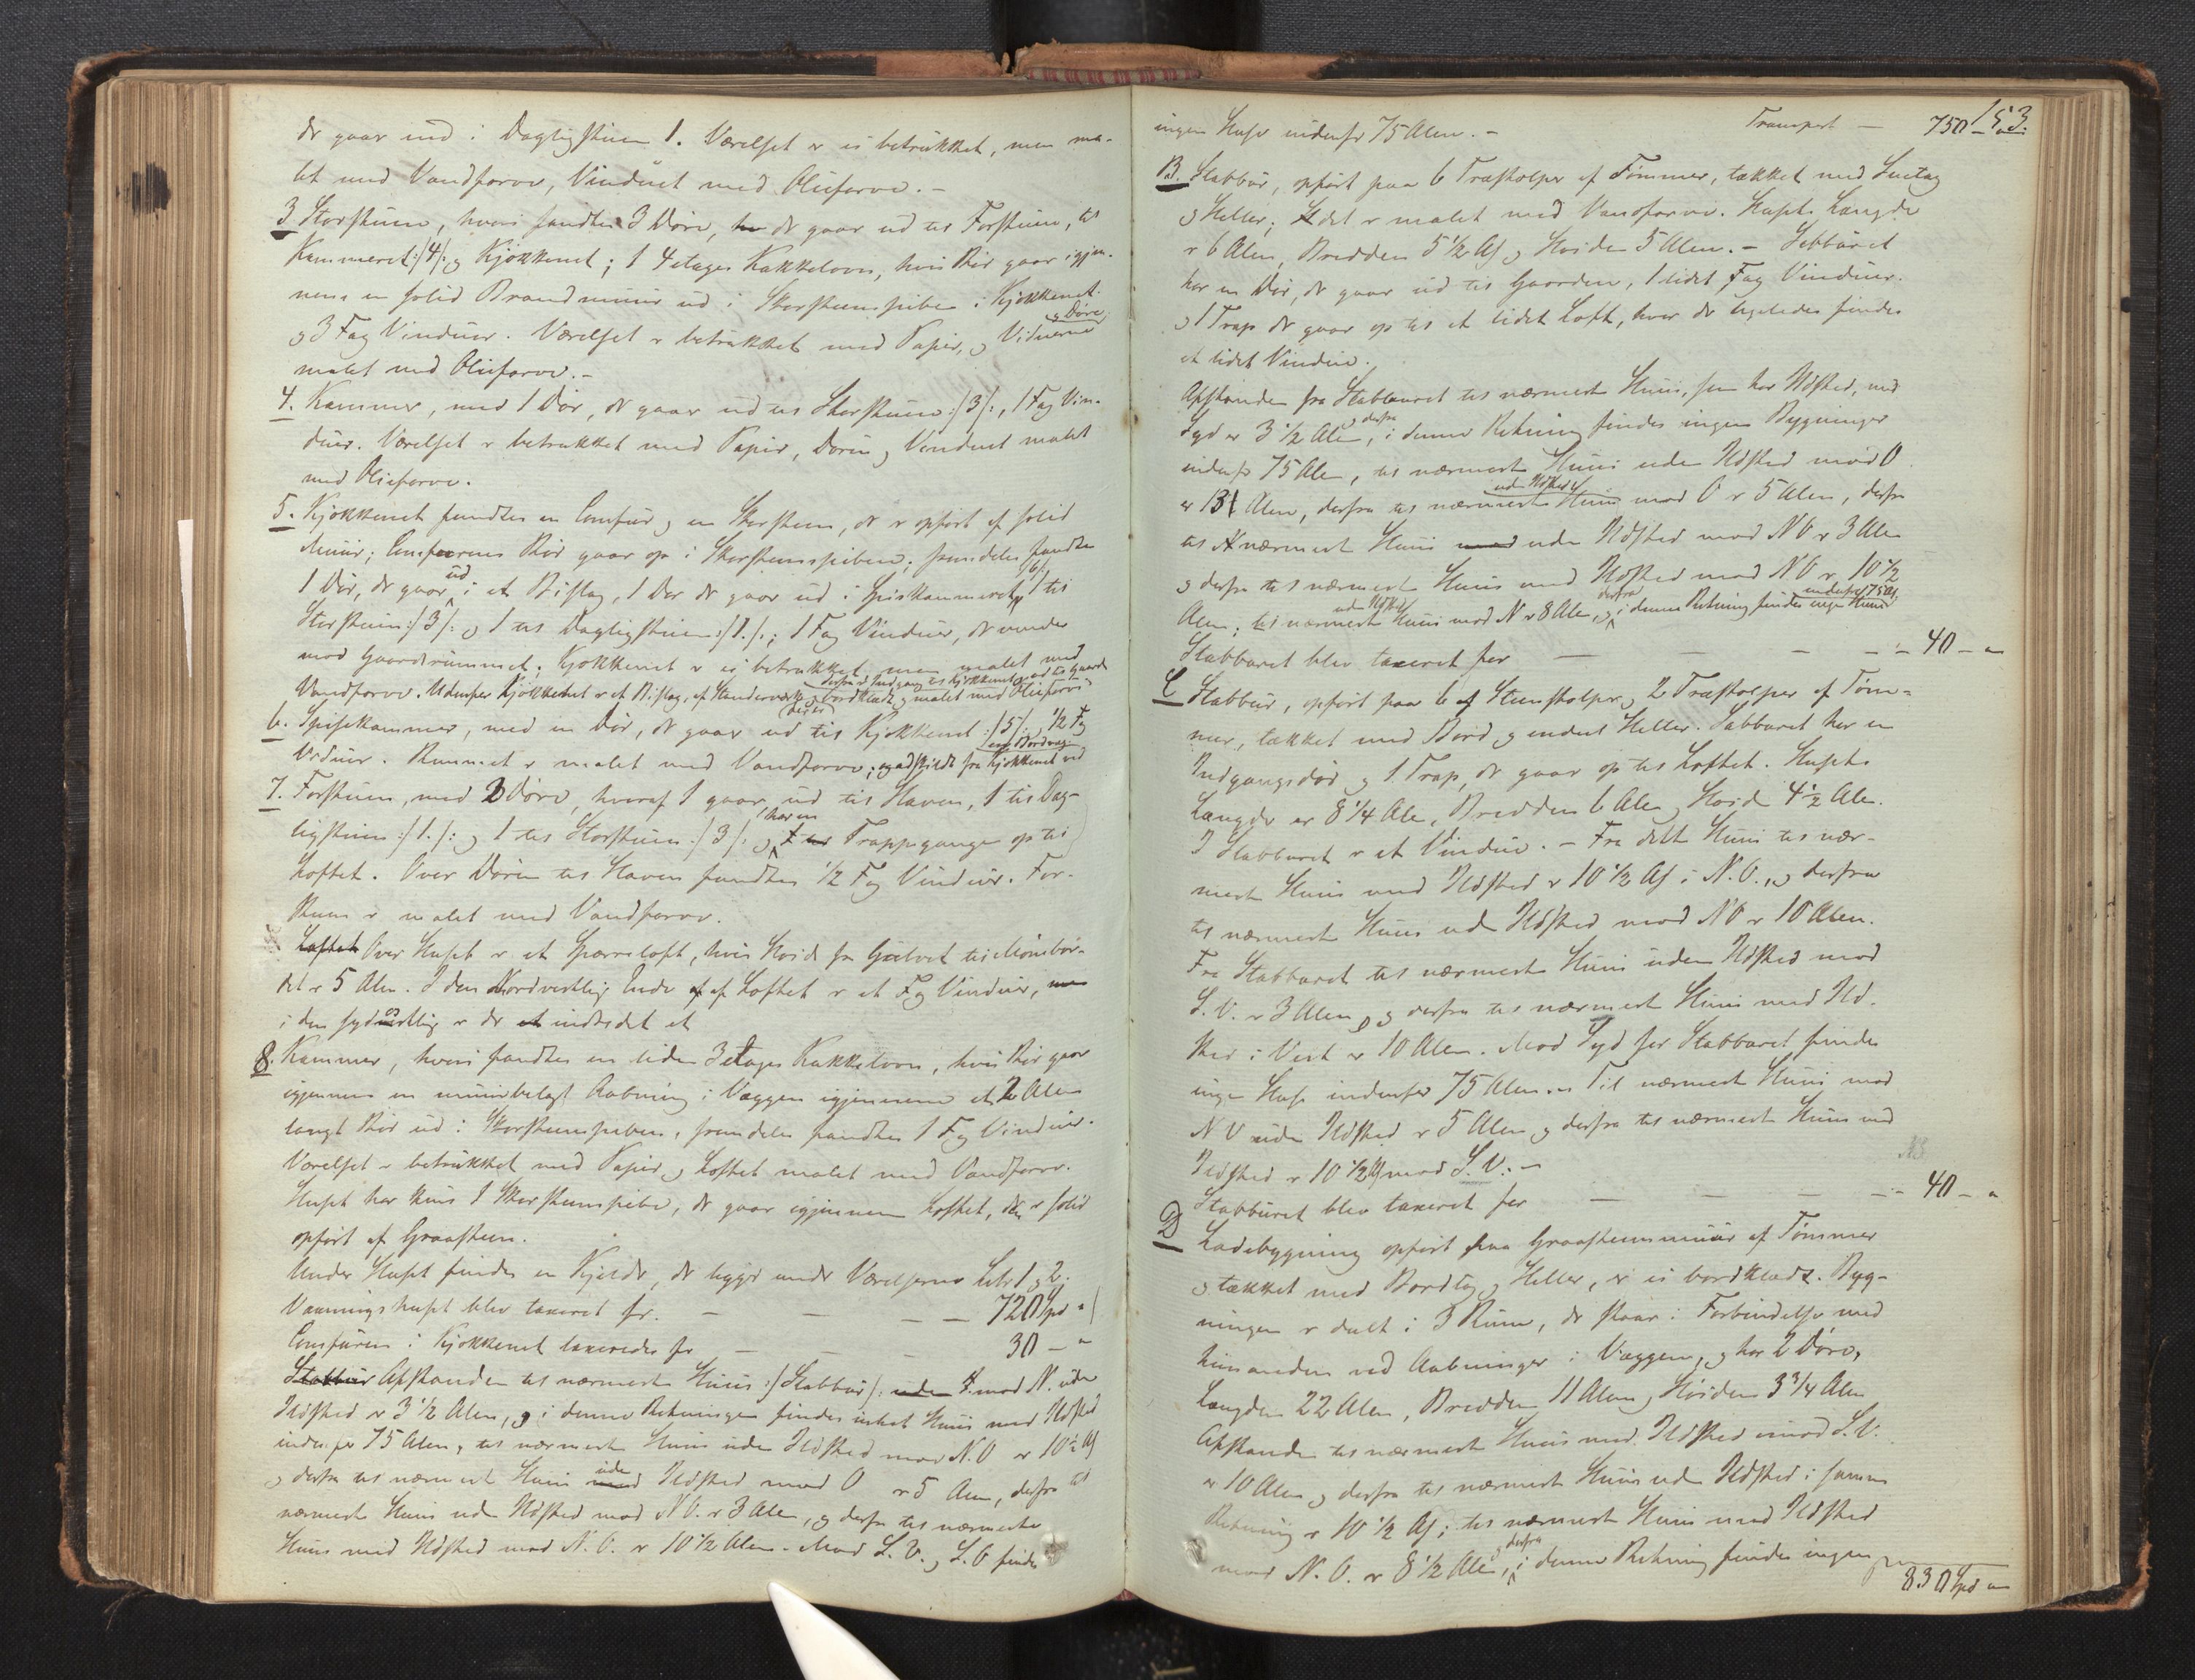 der gaar ind i Dagligstuen 1. Værelset er ei betrukket, men ma-
let med Vandfarve, Vinduet med Oliefarve. -
3 Storstuen, hvori fandtes 3 Døre, der gaar ud til Forstuen, til
Kammeret :/4/: og Kjøkkenet; 1 4etages Kakkelovn, hvis Rør gaar igjen-
nem en solid Brandmuur ud i Skorsteenspiben i Kjøkkenet
og 3 Fag Vinduer. Værelset er betrukket med Papir, og Viduerne og Døre
malet med Oliefarve. -
4. Kammer, med 1 Dør, der gaar ud til Storstuen :/3/:, 1 Fag Vin-
duer. Værelset er betrukket med Papir, Døren og Vinduet malet
med Oliefarve.
5. Kjøkkenet fandtes en Comfur og en Skorsteen, der er opført af solid
Muur; Comfurens Rør gaar op i Skorsteenspiben; fremdeles fandtes
1 Dør, der gaar ud i et Bislag, 1 Dør der gaar ud i Spiskammeret /6/, 1 til
Storstuen :/3/: og 1 til Dagligstuen :/1./:; 1 Fag Vinduer, der vender
mod Gaardsrummet. Kjøkkenet er ei betrukket, men malet med
Vandfarve. Udenfor Kjøkkenet er et Bislag, af Stenderværk, bordklædt og malet med Oliefarve
derfra er Indgang til Kjøkkenet og ud til Gaarden
6. Spisekammer, med en Dør, der gaar ud til Kjøkkenet :/5/:, 1/2 Fag
Viduer. Rummet er malet med Vandfarve; og adskildt fra Kjøkkenet ved en Bordvæg
7. Forstuen, med 3 Døre, hvoraf 1 gaar ud til Haven, 1 til Dag-
ligstuen :/1./: og 1 til Storstuen :/3/: og har en Trappegange op til
Loftet. Over Døren til Haven fandtes 1/2 Fag Vinduer. For-
stuen er malet med Vandfarve.
Loftet Over Huset er et Sperreloft, hvis Høide fra Gulvet til Mønsbor-
det er 5 Alen. I den Nordvestlige Ende af Loftet er et Fag Vinduer,
i den sydostlige er der indredet et
8. Kammer, hvori fandtes en liden 3etages Kakkelovn, hvis Rør gaar
igjennem en muurbelagt Aabning i Væggen igjennem et 2 Alen
langt Rør ud i Skorsteenspiben, fremdeles fandtes 1 Fag Vinduer.
Værelset er betrukket med Papir, og Loftet malet med Vandfarve.
Huset har kuns 1 Skorsteenspibe, der gaar igjennem Loftet, den er solid
opført af Graasteen.
Under Huset findes en Kjelder, der ligger under Værelserne Litr 1 og 2.
Vaaningshuset blev taxeret for. - - - - 720 Spd "
Comfuren i Kjøkkenet taxeredes for - - - 30 - "
Stabbur Afstanden til nærmeste Huus :/Stabbur/: mod N. uden
Ildsted er 3 1/2 Alen, og i denne Retningen findes intet Huus med Ildsted
indenfor 75 Alen, til nærmeste Huus uden Ildsted mod N.O er 10 1/2 Al
og derfra til nærmeste Huus uden Ildsted mod O er 5 Alen, derfra til
nærmeste Huus uden Ildsted mod N O. er 3 Alen, og derfra til nærmeste
Huus med Ildsted mod N. O. er 10 1/2 Alen. Mod S. V. og S. O findes
153
ingen Huse indenfor 75 Alen. - Transport - 750 - "
B. Stabbur, opført paa 6 Træstolper af Tømmer, tækket med Suetag
og Heller; det er malet med Vandfarve. Husets Længde
er 6 Alen, Bredden 5 1/2 Al og Høiden 5 Alen. - Stabburet
har en Dør, der gaar ud til Gaarden, 1 lidet Fag Vinduer.
og 1 Trap der gaar op til et lidet Loft, hvor der ligeledes findes
et lidet Vindue.
Afstanden fra Stabburet til nærmeste Huus, som har Ildsted, mod
Syd er 3 1/2 Alen, og derfra i denne Retning findes ingen Bygninger
indenfor 75 Alen, til nærmeste Huus uden Ildsted mod O
er 13 Alen, derfra til nærmeste Huus uden Ildsted mod O er 5 Alen, derfra
til nærmeste Huus uden Ildsted mod N O er 3 Alen
og derfra til nærmeste Huus med Ildsted mod N O er 10 1/2
Alen; til nærmeste Huus uden Ildsted mod N er 8 Alen, og derfra i denne Retning findes ingen Huse indenfor 75 Al
Stabburet blev taxeret for - - - - 40 - "
C Stabbur, opført paa 6 Steenstolper og 2 Træstolper af Tøm-
mer, tækket med Bord og endeel Heller. Stabburet har en
Indgangsdør og 1 Trap, der gaar op til Loftet. Husets
Længde er 8 1/4 Alen, Bredden 6 Alen og Høide 4 1/2 Alen.
I Stabburet er et Vindue. - Fra dette Huus til nær-
meste Huus med Ildsted er 10 1/2 Al i N. O., og derfra
til nærmeste Huus uden Ildsted mod N O er 10 Alen.
Fra Stabburet til nærmeste Huus uden Ildsted mod
S. V. er 3 Alen, og derfra til nærmeste Huus med Ild-
sted i Vest er 10 Alen. Mod Syd for Stabburet findes
ingen Huse indenfor 75 Alen. Til nærmeste Huus mod
N V uden Ildsted er 5 Alen og derfra til nærmeste Huus med
Ildsted er 10 1/2 Al mod S. V. -
Stabburet blev taxeret for - - - - 40 - "
D Ladebygning opført paa Graasteensmuur af Tømmer
og tækket med Bordtag og Heller, er ei bordklædt. Byg-
ningen er deelt i 3 Rum, der staar i Forbindelse med
hinanden ved Aabninger i Væggen, og har 2 Døre,
Længden 22 Alen, Bredden 11 Alen, Høiden 3 3/4 Alen
Afstanden til nærmeste Huus med Ildsted imod S. V.
er 10 Alen og derfra til nærmeste Huus uden Ildsted i samme
Retning er 10 1/2 Al; til nærmeste Huus med Ildsted
mod N. O. er 8 1/2 Alen, og derfra i denne Retning findes ingen
830 Spd "